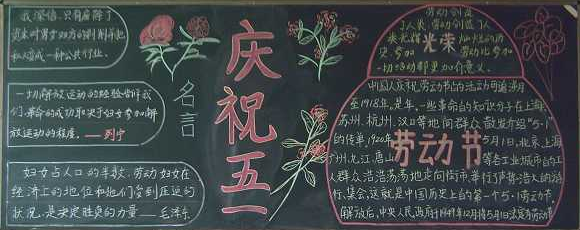 我深信,只有废除了
资本对男女双方的剥削并把
私人
成一种公共行业.
一切解放运动的经验告诉我
们,革命的成功取决于妇女参加解
放运动的程度. ——列宁
妇女占人口的半数,劳动妇女在
经济上的地位和她们受到压迫的
状况,是决定胜负的力量——毛泽东
名言
庆祝五一
劳动创造
了人类,劳动创造了
光荣
一切活动都更加有意义.
劳动节
中国人庆祝劳动节的活动可追溯
至1918年.是年,一些革命的知识分子在上海
苏州、杭州、汉口等地向群众散发介绍“5·1”
的传单.1920年5月1日,北京、上海
广州、九江、唐山等各工业城市的工
人群众浩浩荡荡地走向街市举行了声势浩大的游
行、集会,这就是中国历史上的第一个5·1劳动节.
解放后,中央人民政府于1949年12月将5月1日法定为劳动节